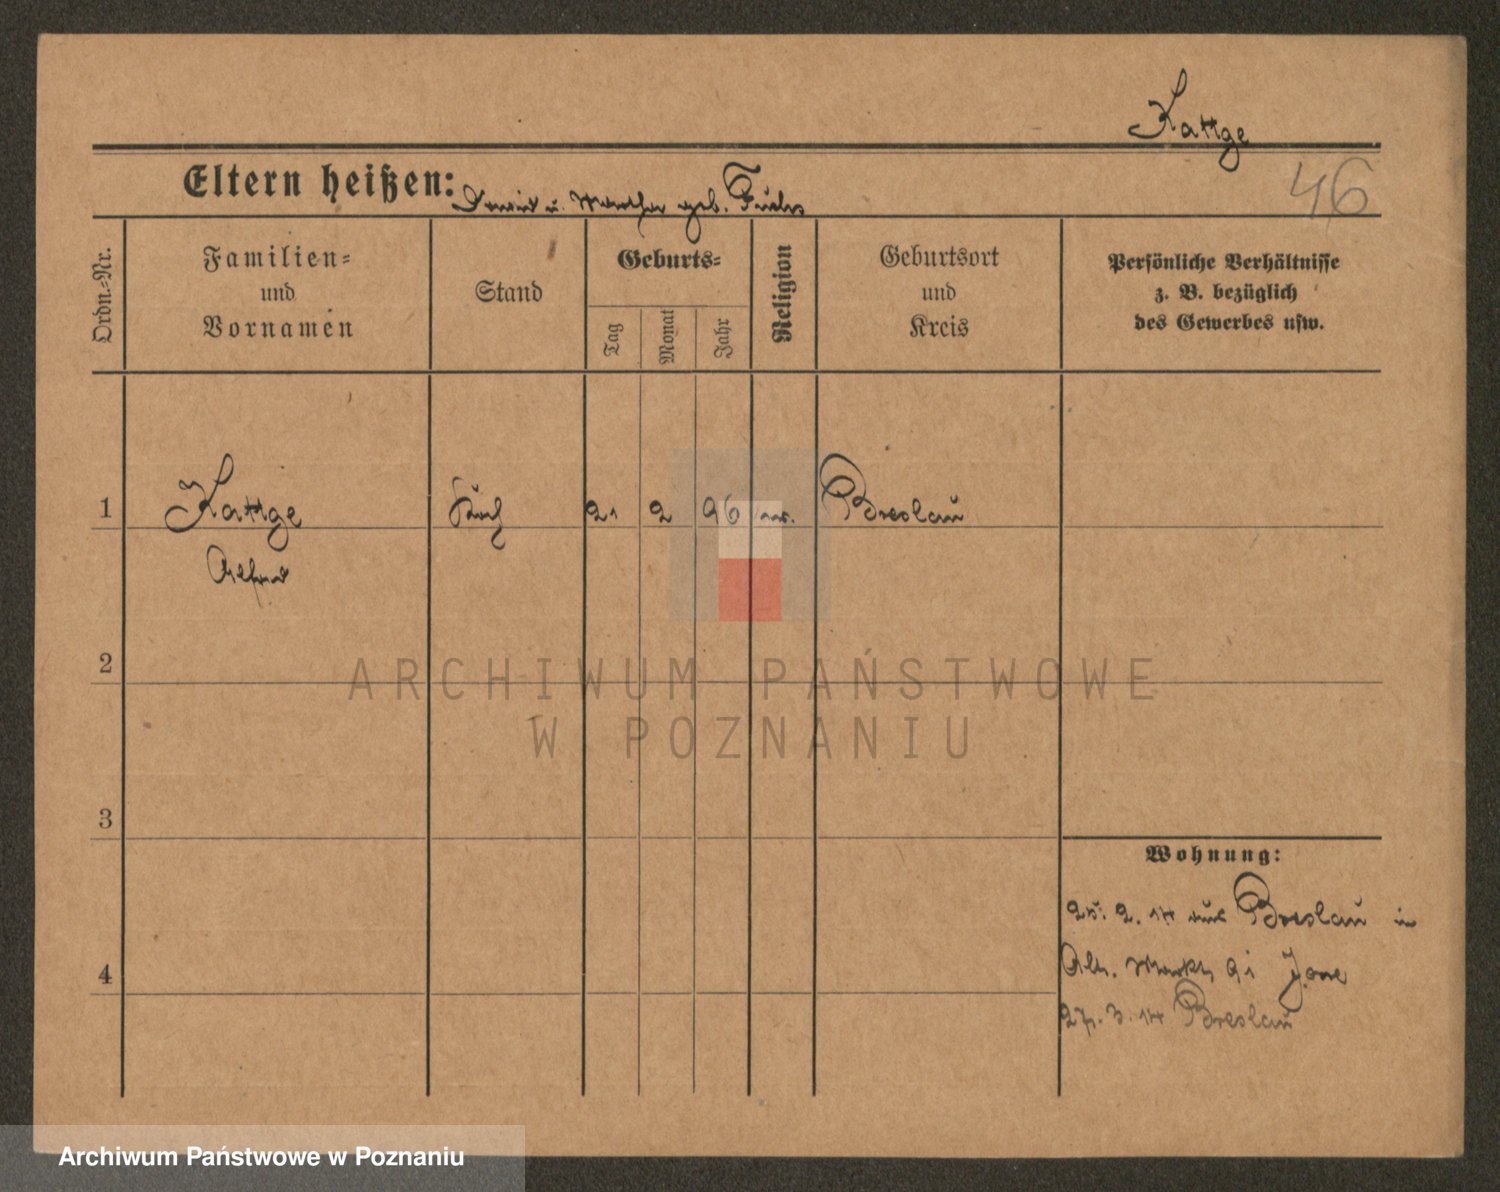 Kattge
Eltern heißen: David u. Martha geb. Fuchs
46
Ordn.-Nr.
Familien=
und
Vornamen
Stand
Geburts=
Tag
Monat
Jahr
Religion
Geburtsort
und
Kreis
Persönliche Verhältnisse
z. B. bezüglich
des Gewerbes usw.
1 Kattge 21 2 96 Breslau
Alfred
2
3
4
Wohnung:
25. 2. 14 aus Breslau in
Alt. Markt 91
27. 3. 14 Breslau
ARCHIWUM PAŃSTWOWE
W POZNANIU
Archiwum Państwowe w Poznaniu